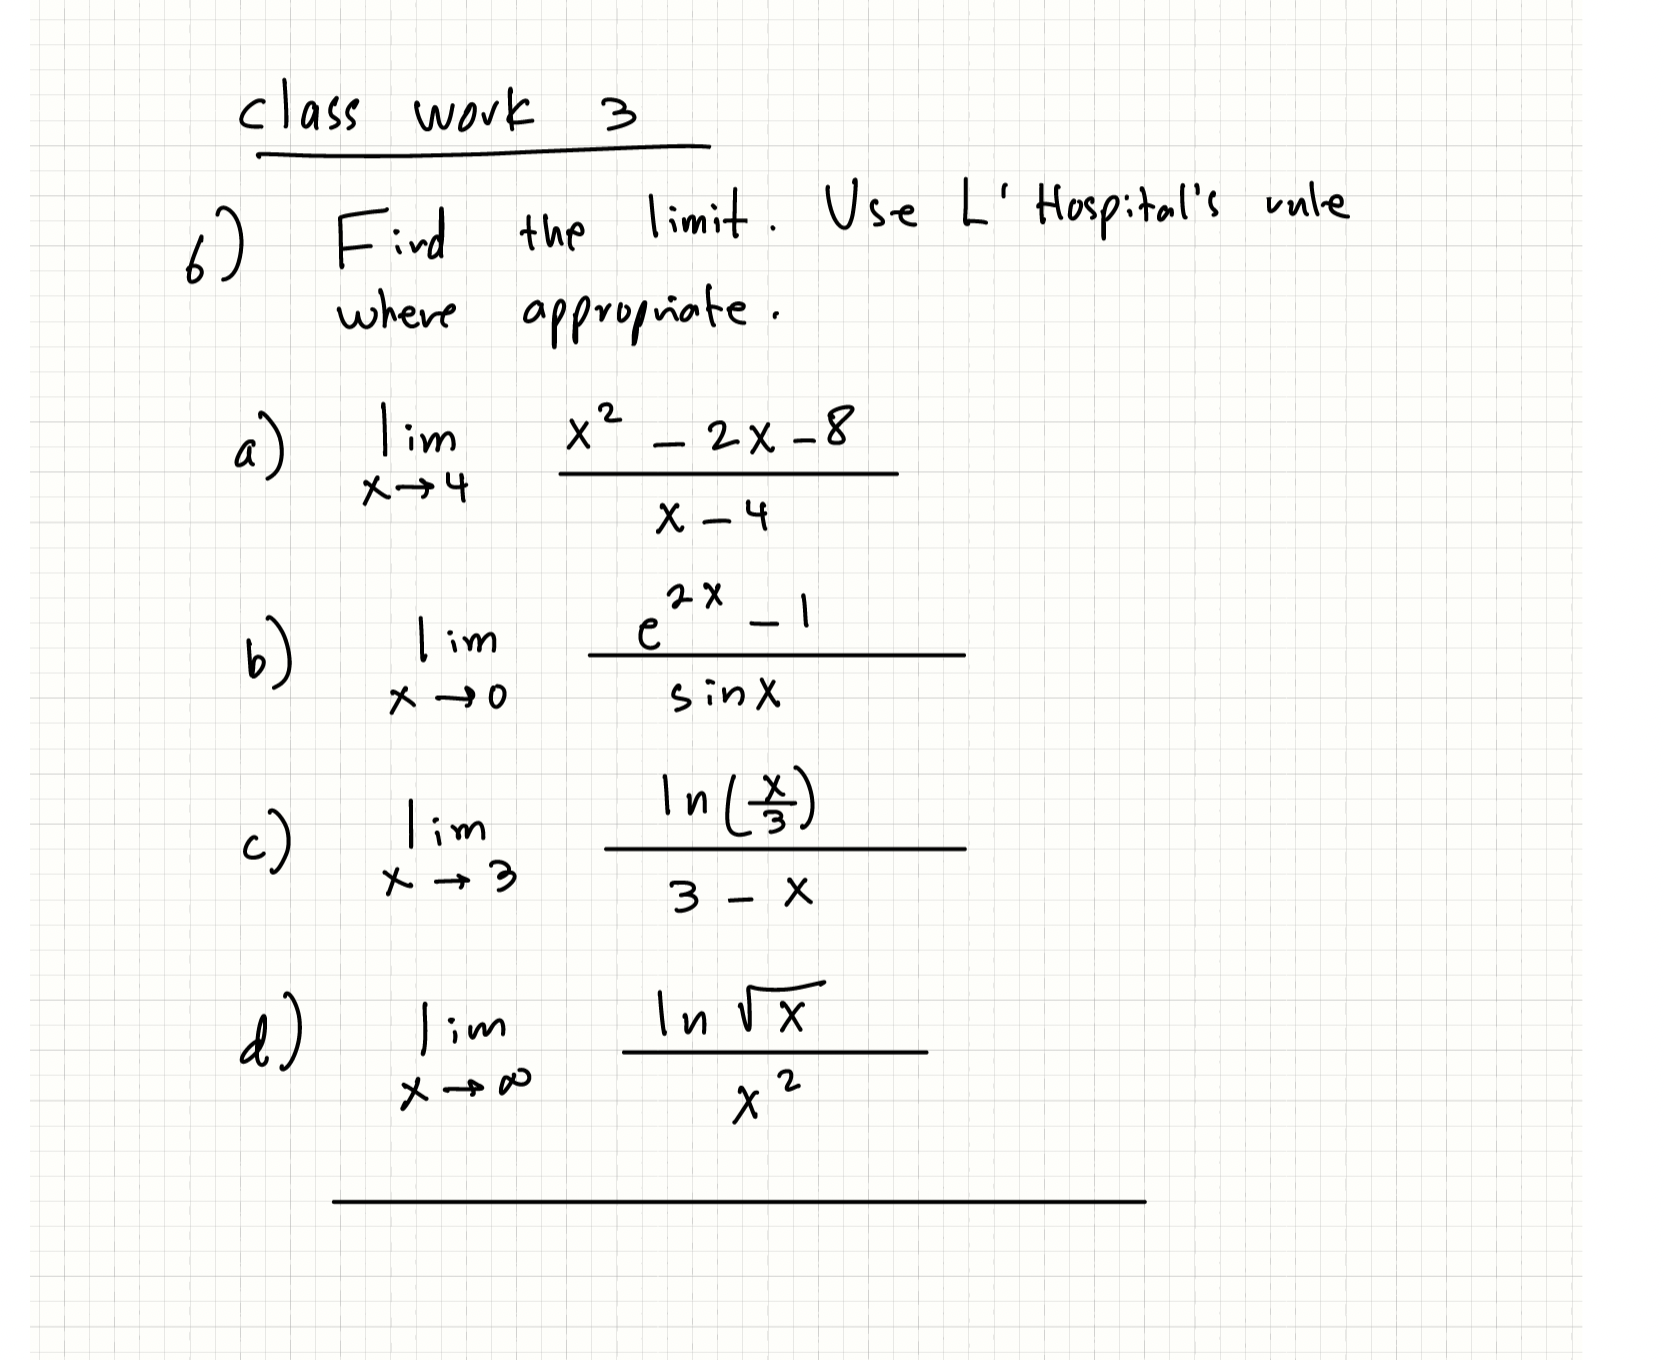 class work 3
6) Find the limit. Use L'Hospital's rule
where appropriate.
a) lim x→4 (x² - 2x - 8) / (x - 4)
b) lim x→0 (e^(2x) - 1) / (sin x)
c) lim x→3 ln(x/3) / (3 - x)
d) lim x→∞ ln √x / x²